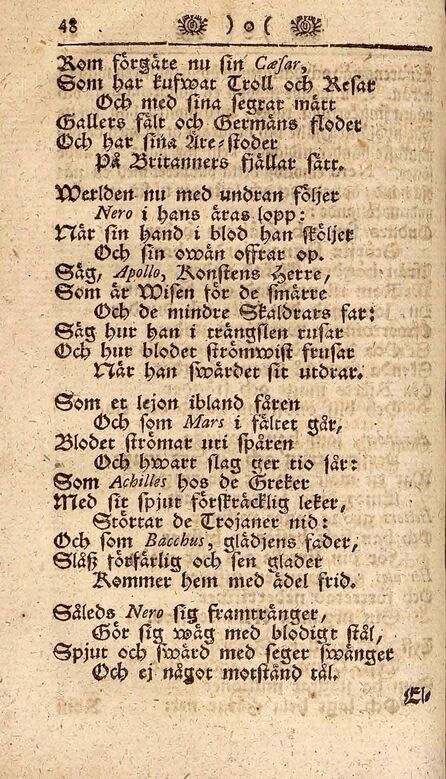 48 ) o (
Rom förgäte nu sin Cæsar,
Som har kufwat Troll och Resar
Och med sina segrar mätt
Gallers fält och Germäns floder
Och har sina Äre-stoder
På Britanners fjällar sätt.
Werlden nu med undran följer
Nero i hans äras lopp:
När sin hand i blod han sköljer
Och sin owän offrar op.
Säg, Apollo, Konstens Herre,
Som är Wisen för de smärre
Och de mindre Skaldrars far:
Säg hur han i trängslen rusar
Och hur blodet strömwist frusar
När han swärdet sit utdrar.
Som et lejon ibland fåren
Och som Mars i fältet går,
Blodet strömar uti spåren
Och hwart slag ger tio sår:
Som Achilles hos de Greker
Med sit spjut förskräcklig leker,
Störtar de Trojaner nid:
Och som Bacchus, glädjens fader,
Släß förfärlig och sen glader
Kommer hem med ädel frid.
Såleds Nero sig framtränger,
Gör sig wäg med blodigt stål,
Spjut och swärd med seger swänger
Och ej något motstånd tål.